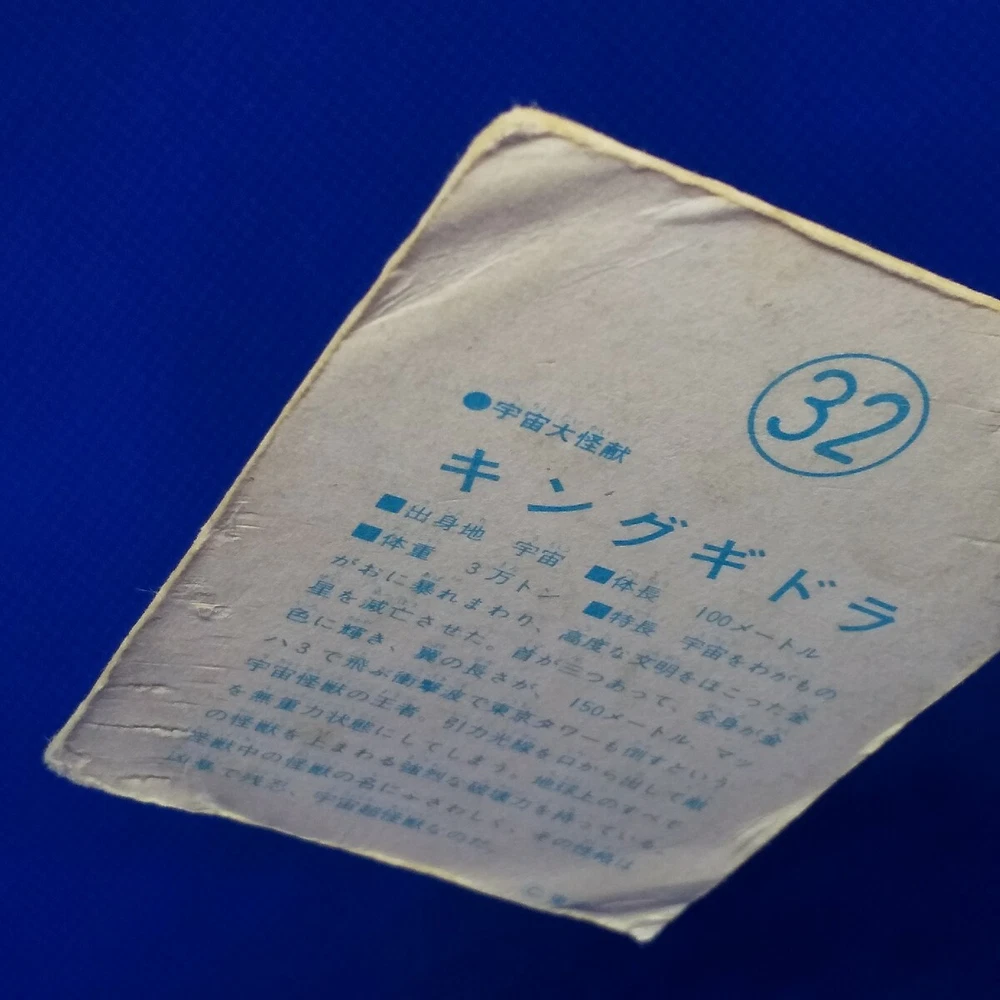 32
●宇宙大怪獣
キングギドラ
■出身地 宇宙 ■体長 100メートル
■体重 3万トン ■特長 宇宙をわがもの
がおに暴れまわり、高度な文明をほこった金
星を滅亡させた。首が三つあって、全身が金
色に輝き、翼の長さが、150メートル、マッ
ハ3で飛ぶ衝撃波で東京タワーも倒すという
宇宙怪獣の王者。引力光線を口から出して敵
を無重力状態にしてしまう。地球上のすべて
の怪獣を上まわる強烈な破壊力を持っている。
怪獣中の怪獣の名にふさわしく、その性格は
凶暴で残忍、宇宙超怪獣なのだ。